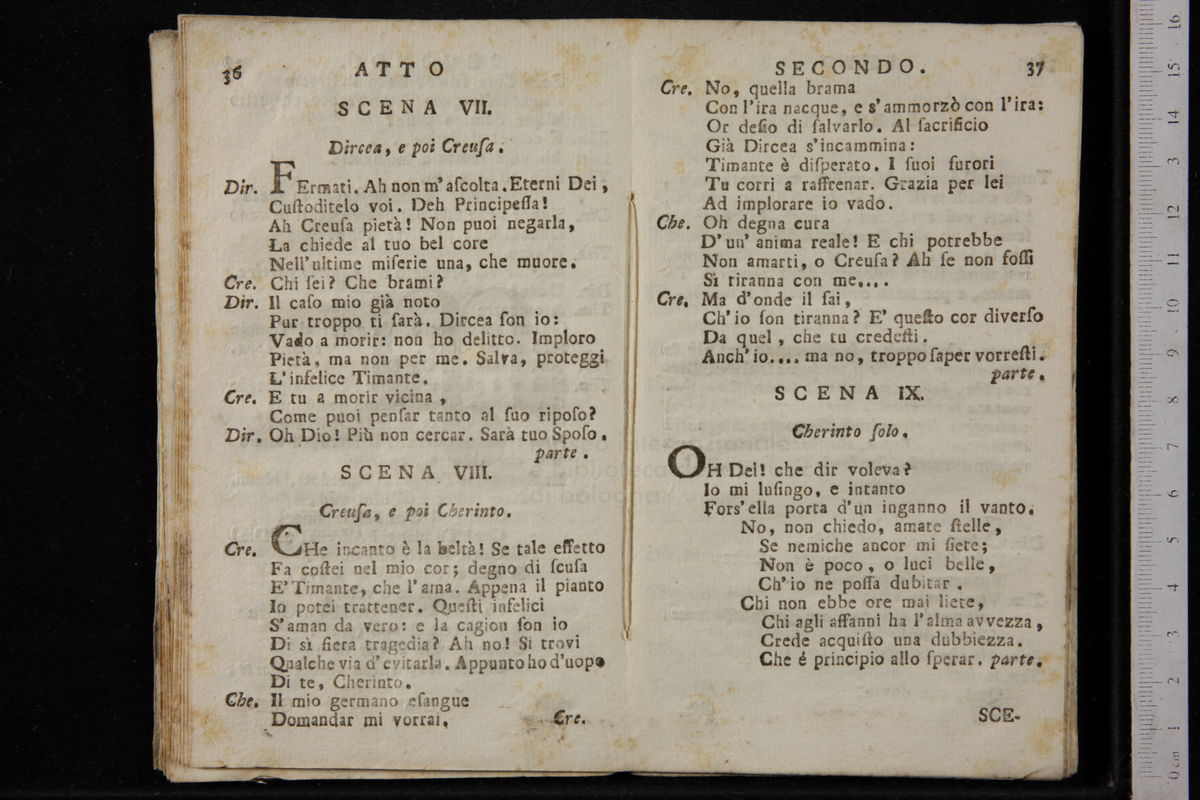 36 ATTO
SCENA VII.
Dircea, e poi Creuſa.
Dir. FErmati. Ah non m'aſcolta. Eterni Dei,
Cuſtoditelo voi. Deh Principeſſa!
Ah Creuſa pietà! Non puoi negarla,
La chiede al tuo bel core
Nell'ultime miſerie una, che muore.
Cre. Chi ſei? Che brami?
Dir. Il caſo mio già noto
Pur troppo ti ſarà. Dircea ſon io:
Vado a morir: non ho delitto. Imploro
Pietà, ma non per me. Salva, proteggi
L'infelice Timante.
Cre. E tu a morir vicina,
Come puoi penſar tanto al ſuo ripoſo?
Dir. Oh Dio! Più non cercar. Sarà tuo Spoſo.
parte.
SCENA VIII.
Creuſa, e poi Cherinto.
Cre. CHe incanto è la beltà! Se tale effetto
Fa coſtei nel mio cor; degno di ſcuſa
E'Timante, che l'ama. Appena il pianto
Io potei trattener. Queſti infelici
S'aman da vero: e la cagion ſon io
Di sì fiera tragedia? Ah no! Si trovi
Qualche via d'evitarla. Appunto ho d'uopo
Di te, Cherinto.
Che. Il mio germano eſangue
Domandar mi vorrai.
Cre.
SECONDO. 37
Cre. No, quella brama
Con l'ira nacque, e s'ammorzò con l'ira:
Or deſio di ſalvarlo. Al ſacrificio
Già Dircea s'incammina:
Timante è diſperato. I ſuoi furori
Tu corri a raffrenar. Grazia per lei
Ad implorare io vado.
Che. Oh degna cura
D'un'anima reale! E chi potrebbe
Non amarti, o Creuſa? Ah ſe non foſſi
Sì tiranna con me....
Cre. Ma d'onde il ſai,
Ch'io ſon tiranna? E' queſto cor diverſo
Da quel, che tu credeſti.
Anch'io.... ma no, troppo ſaper vorreſti.
parte.
SCENA IX.
Cherinto ſolo.
OH Dei! che dir voleva?
Io mi luſingo, e intanto
Fors'ella porta d'un inganno il vanto.
No, non chiedo, amate ſtelle,
Se nemiche ancor mi ſiete;
Non è poco, o luci belle,
Ch'io ne poſſa dubitar.
Chi non ebbe ore mai liete,
Chi agli affanni ha l'alma avvezza,
Crede acquiſto una dubbiezza.
Che é principio allo ſperar. parte.
SCE-
0 cm 1 2 3 4 5 6 7 8 9 10 11 12 13 14 15 16